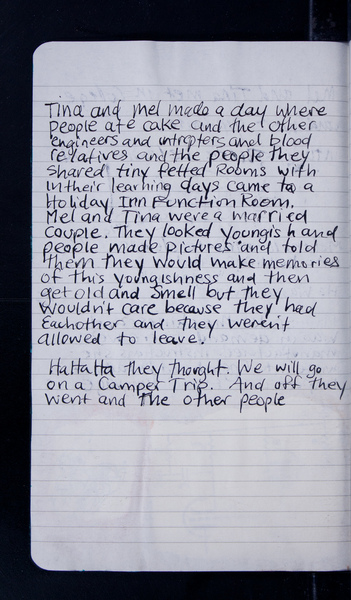 Tina and Mel made a day where
People ate cake and the other
engineers and intrpters and blood
relatives and the people They
shared tiny fetted Rooms with
in their learning days came to a
Holiday Inn Function Room.
Mel and Tina were a married
couple. They looked youngish and
people made pictures and told
them they would make memories
of this youngishness and then
get old and smell but they
wouldn't care because they had
Eachother and they weren't
allowed to leave.
HaHaHa they thought. We will go
on a Camper Trip. And off they
went and The other people